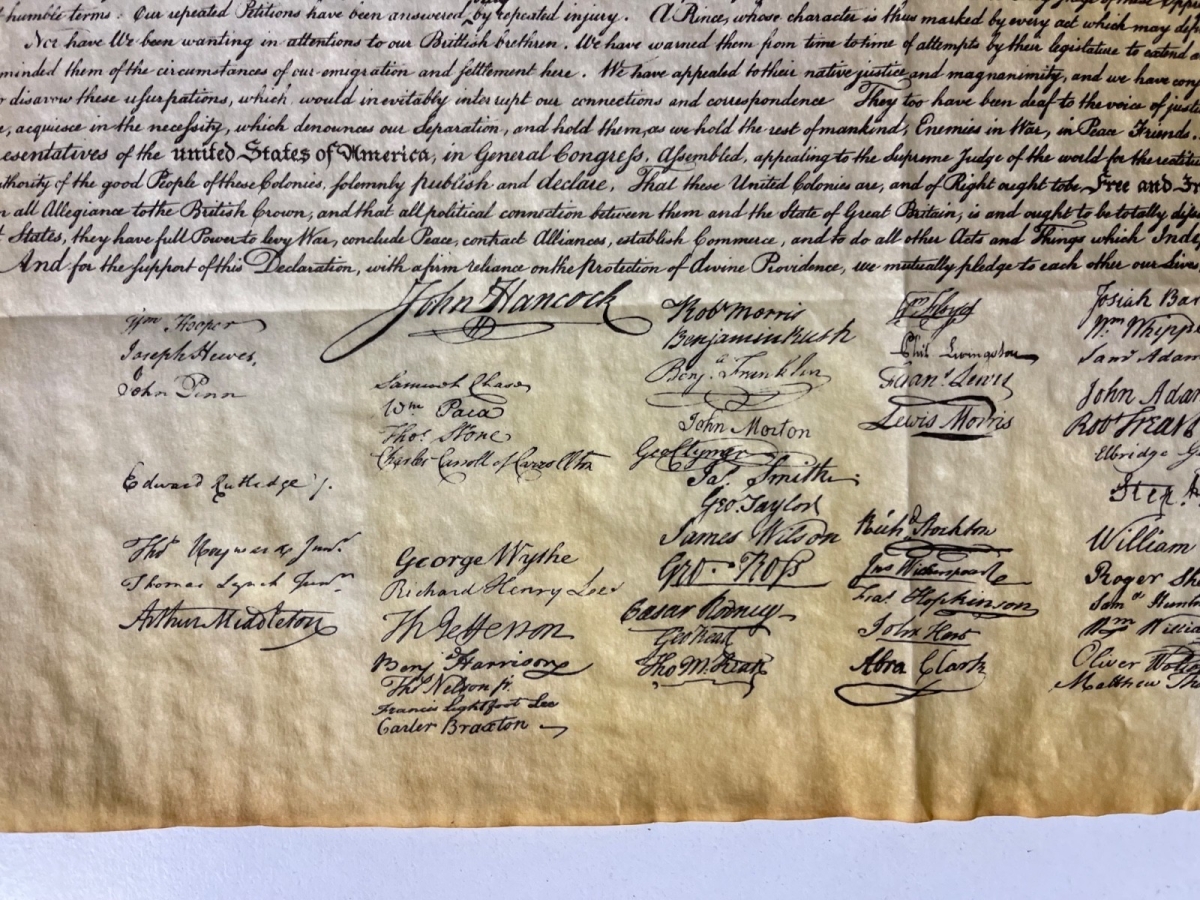 humble terms: Our repeated Petitions have been answered by repeated injury. A Prince, whose character is thus marked by every act which may
Nor have We been wanting in attentions to our Brittish brethren. We have warned them from time to time of attempts by their legislature to extend
minded them of the circumstances of our emigration and settlement here. We have appealed to their native justice and magnanimity, and we have
disavow these usurpations, which, would inevitably interrupt our connections and correspondence They too have been deaf to the voice of
acquiesce in the necessity, which denounces our Separation, and hold them, as we hold the rest of mankind, Enemies in War, in Peace Friends.
esentatives of the united States of America, in General Congress, Assembled, appealing to the Supreme Judge of the world for the
uthority of the good People of these Colonies, solemnly publish and declare, That these United Colonies are, and of Right ought to be Free and
all Allegiance to the British Crown, and that all political connection between them and the State of Great Britain, is and ought to be totally
States, they have full Power to levy War, conclude Peace, contract Alliances, establish Commerce, and to do all other Acts and Things which
And for the support of this Declaration, with a firm reliance on the Protection of divine Providence, we mutually pledge to each other our Lives,
John Hancock
Wm Hooper
Joseph Hewes,
John Penn
Edward Rutledge /.
Thos Heyward Junr.
Thomas Lynch Junr.
Arthur Middleton
Samuel Chase
Wm Paca
Thos Stone
Charles Carroll of Carrollton
George Wythe
Richard Henry Lee
Th Jefferson
Benj Harrison
Thos Nelson jr.
Francis Lightfoot Lee
Carter Braxton
Robt Morris
Benjamin Rush
Benja. Franklin
John Morton
Geo Clymer
Jas. Smith
Geo. Taylor
James Wilson
Geo. Ross
Caesar Rodney
Geo Read
Tho M:Kean
Wm Floyd
Phil. Livingston
Frans. Lewis
Lewis Morris
Richd. Stockton
Jno Witherspoon
Fras. Hopkinson
John Hart
Abra Clark
Josiah Bar
Wm Whipp
Saml Adam
John Adam
Robt Treat
Elbridge G
Step. H
William
Roger She
Saml Hunt
Wm Willia
Oliver Wolc
Matthew Th